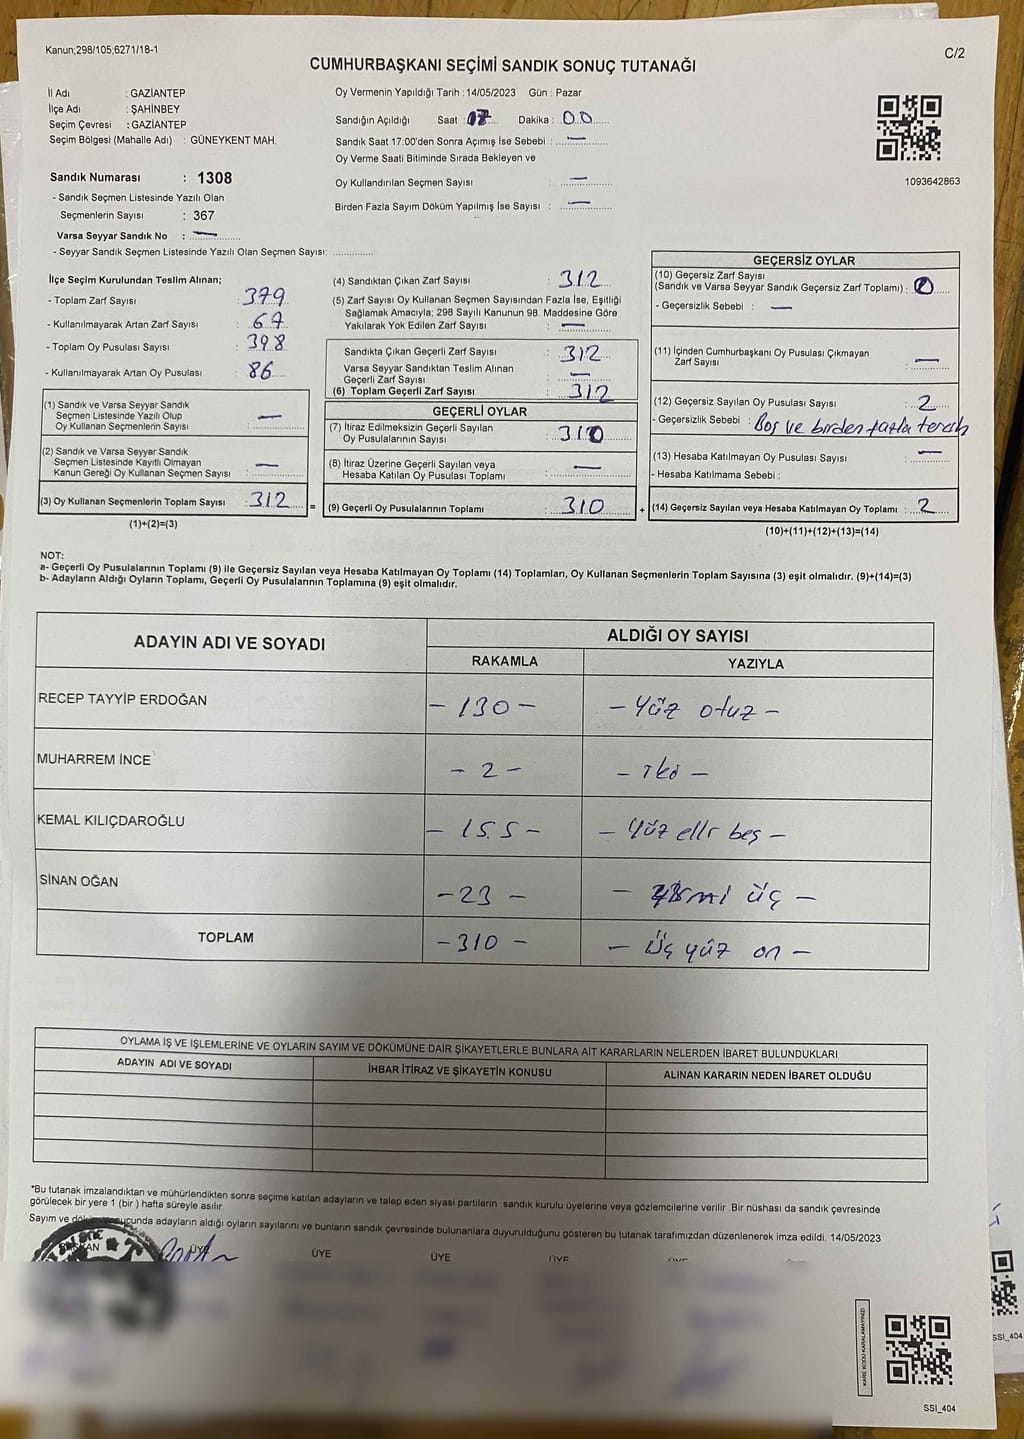 Kanun;298/105;6271/18-1
C/2
CUMHURBAŞKANI SEÇİMİ SANDIK SONUÇ TUTANAĞI
İl Adı : GAZİANTEP
İlçe Adı : ŞAHİNBEY
Seçim Çevresi : GAZİANTEP
Seçim Bölgesi (Mahalle Adı) : GÜNEYKENT MAH.
Oy Vermenin Yapıldığı Tarih :14/05/2023 Gün : Pazar
Sandığın Açıldığı Saat :17 Dakika : 00
Sandık Saat 17:00'den Sonra Açımış İse Sebebi : —
Oy Verme Saati Bitiminde Sırada Bekleyen ve
Oy Kullandırılan Seçmen Sayısı : —
Birden Fazla Sayım Döküm Yapılmış İse Sayısı : —
1093642863
Sandık Numarası : 1308
- Sandık Seçmen Listesinde Yazılı Olan
Seçmenlerin Sayısı : 367
Varsa Seyyar Sandık No : —
- Seyyar Sandık Seçmen Listesinde Yazılı Olan Seçmen Sayısı:
İlçe Seçim Kurulundan Teslim Alınan;
- Toplam Zarf Sayısı : 379
- Kullanılmayarak Artan Zarf Sayısı : 67
- Toplam Oy Pusulası Sayısı : 398
- Kullanılmayarak Artan Oy Pusulası : 86
(1) Sandık ve Varsa Seyyar Sandık
Seçmen Listesinde Yazılı Olup
Oy Kullanan Seçmenlerin Sayısı : —
(2) Sandık ve Varsa Seyyar Sandık
Seçmen Listesinde Kayıtlı Olmayan
Kanun Gereği Oy Kullanan Seçmen Sayısı : —
(3) Oy Kullanan Seçmenlerin Toplam Sayısı : 312 =
(1)+(2)=(3)
(4) Sandıktan Çıkan Zarf Sayısı : 312
(5) Zarf Sayısı Oy Kullanan Seçmen Sayısından Fazla İse, Eşitliği
Sağlamak Amacıyla; 298 Sayılı Kanunun 98. Maddesine Göre
Yakılarak Yok Edilen Zarf Sayısı : —
Sandıkta Çıkan Geçerli Zarf Sayısı : 312
Varsa Seyyar Sandıktan Teslim Alınan
Geçerli Zarf Sayısı : —
(6) Toplam Geçerli Zarf Sayısı : 312
GEÇERLİ OYLAR
(7) İtiraz Edilmeksizin Geçerli Sayılan
Oy Pusulalarının Sayısı : 310
(8) İtiraz Üzerine Geçerli Sayılan veya
Hesaba Katılan Oy Pusulası Toplamı : —
(9) Geçerli Oy Pusulalarının Toplamı : 310 +
GEÇERSİZ OYLAR
(10) Geçersiz Zarf Sayısı
(Sandık ve Varsa Seyyar Sandık Geçersiz Zarf Toplamı) : 0
- Geçersizlik Sebebi : —
(11) İçinden Cumhurbaşkanı Oy Pusulası Çıkmayan
Zarf Sayısı : —
(12) Geçersiz Sayılan Oy Pusulası Sayısı : 2
- Geçersizlik Sebebi : Boş ve birden fazla tercih
(13) Hesaba Katılmayan Oy Pusulası Sayısı : —
- Hesaba Katılmama Sebebi :
(14) Geçersiz Sayılan veya Hesaba Katılmayan Oy Toplamı : 2
(10)+(11)+(12)+(13)=(14)
NOT:
a- Geçerli Oy Pusulalarının Toplamı (9) ile Geçersiz Sayılan veya Hesaba Katılmayan Oy Toplamı (14) Toplamları, Oy Kullanan Seçmenlerin Toplam Sayısına (3) eşit olmalıdır. (9)+(14)=(3)
b- Adayların Aldığı Oyların Toplamı, Geçerli Oy Pusulalarının Toplamına (9) eşit olmalıdır.
ADAYIN ADI VE SOYADI ALDIĞI OY SAYISI
RAKAMLA YAZIYLA
RECEP TAYYİP ERDOĞAN - 130 - - Yüz otuz -
MUHARREM İNCE - 2 - - iki -
KEMAL KILIÇDAROĞLU - 155 - - Yüz elli beş -
SİNAN OĞAN - 23 - - yirmi üç -
TOPLAM - 310 - - Üç yüz on -
OYLAMA İŞ VE İŞLEMLERİNE VE OYLARIN SAYIM VE DÖKÜMÜNE DAİR ŞİKAYETLERLE BUNLARA AİT KARARLARIN NELERDEN İBARET BULUNDUKLARI
ADAYIN ADI VE SOYADI İHBAR İTİRAZ VE ŞİKAYETİN KONUSU ALINAN KARARIN NEDEN İBARET OLDUĞU
*Bu tutanak imzalandıktan ve mühürlendikten sonra seçime katılan adayların ve talep eden siyasi partilerin sandık kurulu üyelerine veya gözlemcilerine verilir .Bir nüshası da sandık çevresinde
görülecek bir yere 1 (bir ) hafta süreyle asılır.
Sayım ve adayların aldığı oyların sayılarını ve bunların sandık çevresinde bulunanlara duyurulduğunu gösteren bu tutanak tarafımızdan düzenlenerek imza edildi. 14/05/2023
ÜYE ÜYE ÜYE ÜYE
KARE KODU KARALAMAYINIZ!
SSI_404
SSI_404